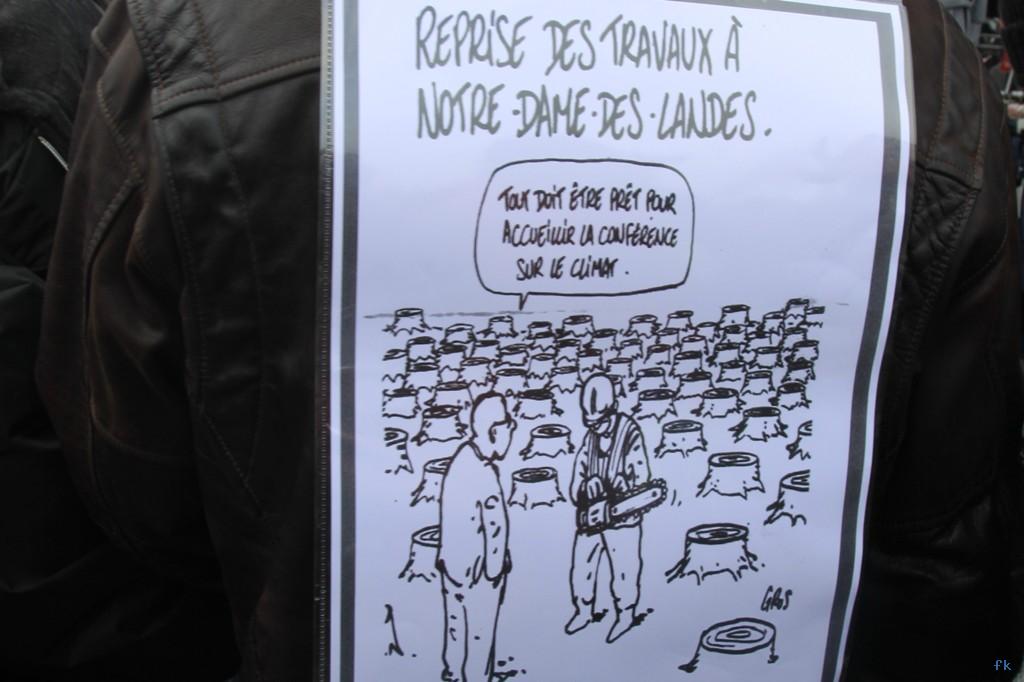 REPRISE DES TRAVAUX À
NOTRE-DAME-DES-LANDES.
TOUT DOIT ÊTRE PRÊT POUR
ACCUEILLIR LA CONFÉRENCE
SUR LE CLIMAT.
GROS
fk